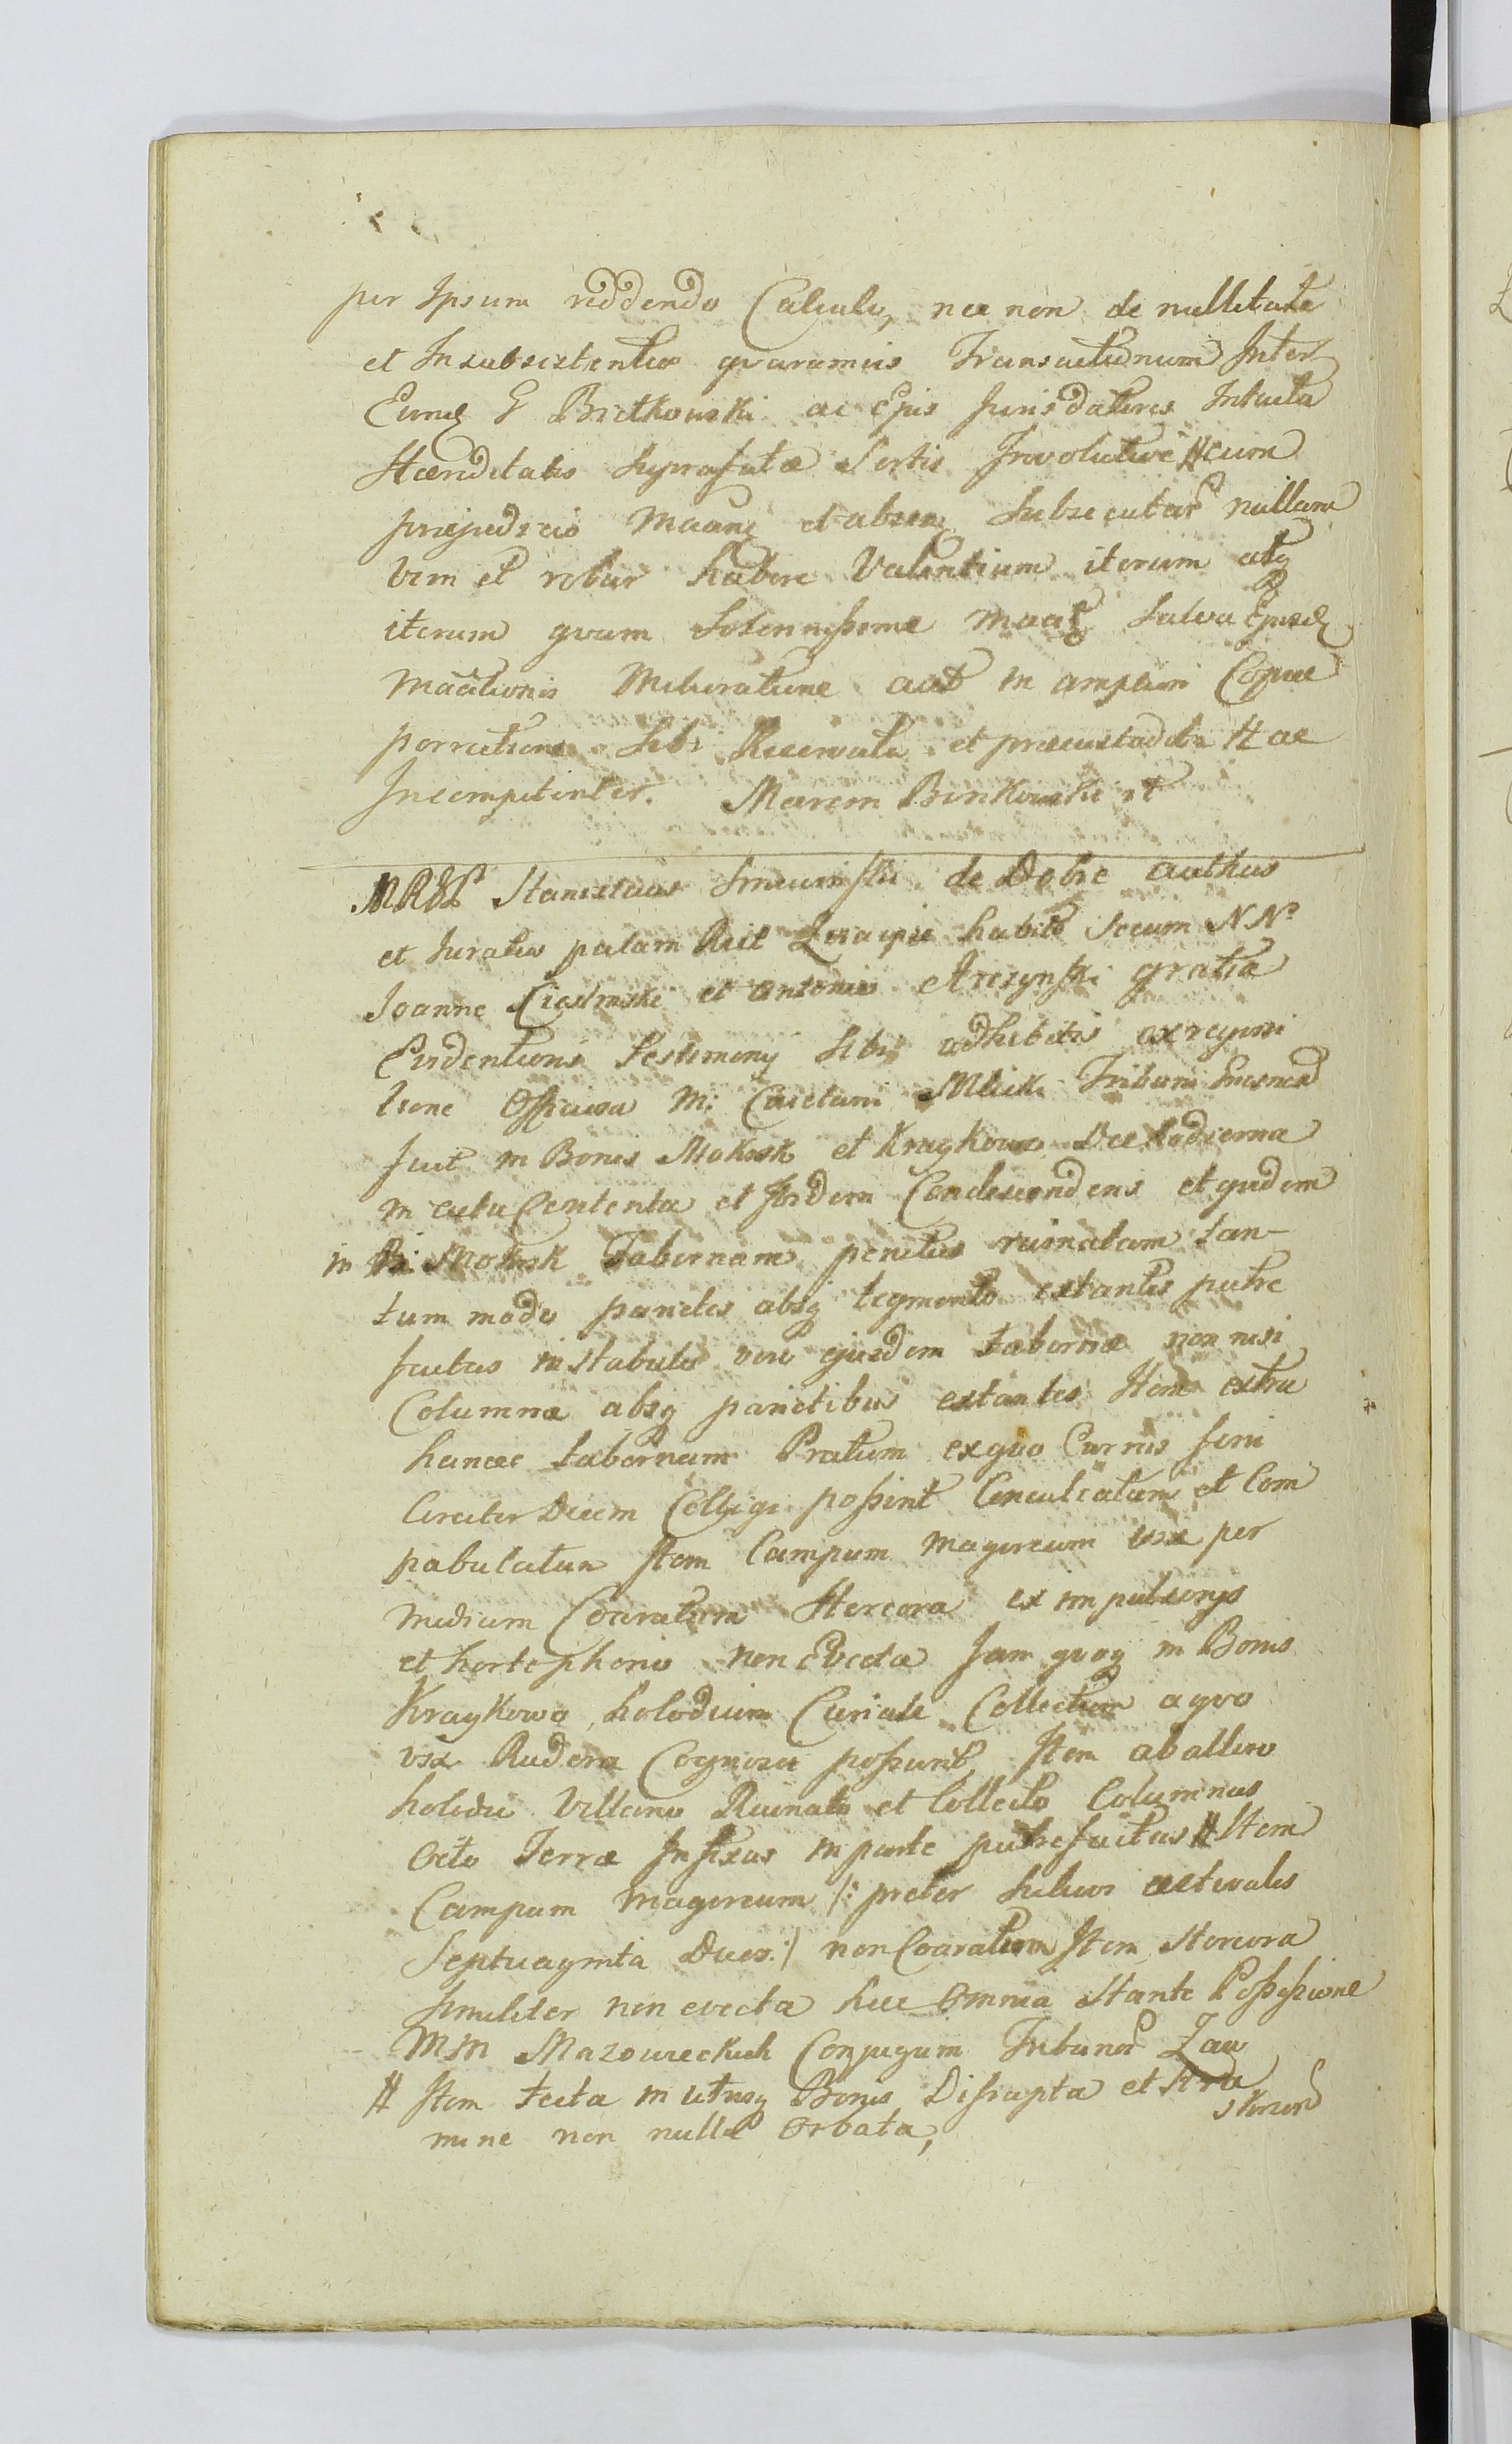 per Ipsum reddendo Calculo, nec non de nullitate
et Insubsistentia quarumvis Transactionum Inter
Eund G Bretkowski ac Ejus Jurisdatores Intuitu
Hæreditatis suprafatæ Sortis Involutive # cum
præjudicio Maang et absen subsecutar nullam
vim et robur habere Valentium iterum atq
iterum quam solennissime maat salva Ejusd
Maationis Melioratione aat in ampliori Copiæ
porrectione sibi Reservata et præcustodita # ac
Incompetenter. Marcin Binkowski rt
MRdl Stanislaus de Dobre authus
et Juratus palam Rcit Quia ipse habitis secum NN
Joanne Cieslinski et Antonio gratia
Evidentioris Testimony sibi adhibitis ex requisi
tione Officiosa M: Caietani Mlicki Tribuni
fuit in Bonis Mokosk et Kraykowo Die hodierna
in actu Contenta et Ibidem Condescendens et quidem
in B: Mokosk Tabernam penitus ruinatam tan-
tum modo parietes absq tegmento extantes putre
factas in stabulo vero ejusdem tabernæ non nisi
Columnæ absq parietibus extantes Item extra
hancce tabernam Pratum ex quo Currus feni
Circiter Decem Colligi possint Conculcatum et Com
pabulatum Item Campum magereum vix per
medium Coaratum Stercora ex impulsorys
et hortephorio non Evecta Jam quoq in Bonis
Kraykowo holodium Curiale Collectum a quo
vix Rudera Cognosci possunt, Item ab altero
holodio Villano Ruinato et Collecto Columnas
Octo Terræ Infixas in parte putrefactas # Item
Campum magereum /: preter sulcos æstivales
Septuaginta Duos :/ non Coaratum Item Stercora
similiter non evecta hæc Omnia Stante Possessione
MM Mazowieckich Conjugum Tribunor Zau
# Item tecta in utrisq Bonis Disrupta et stra
mine non nullæ Orbata,